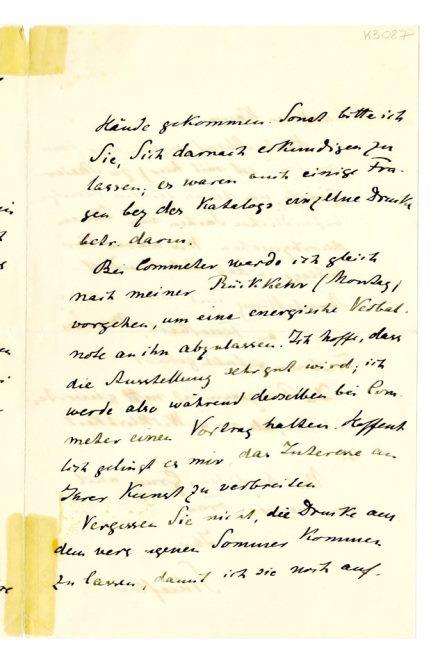 K3087
Hände gekommen. Sonst bitte ich
Sie, Sich darnach erkundigen zu
lassen; es waren auch einige Fra-
gen bez. des Katalogs einzelne Drucke
betr. darin.
Bei Commeter werde ich gleich
nach meiner Rückkehr (Montag)
vorgehen, um eine energische Verbal-
note an ihn abzulassen. Ich hoffe, dass
die Ausstellung sehr gut wird; ich
werde also während derselben bei Com-
meter einen Vortrag halten. Hoffent
lich gelingt es mir, das Interesse an
Ihrer Kunst zu verbreiten
Vergessen Sie nicht, die Drucke aus
dem verg genen Sommer kommen
zu lassen, damit ich sie noch auf-